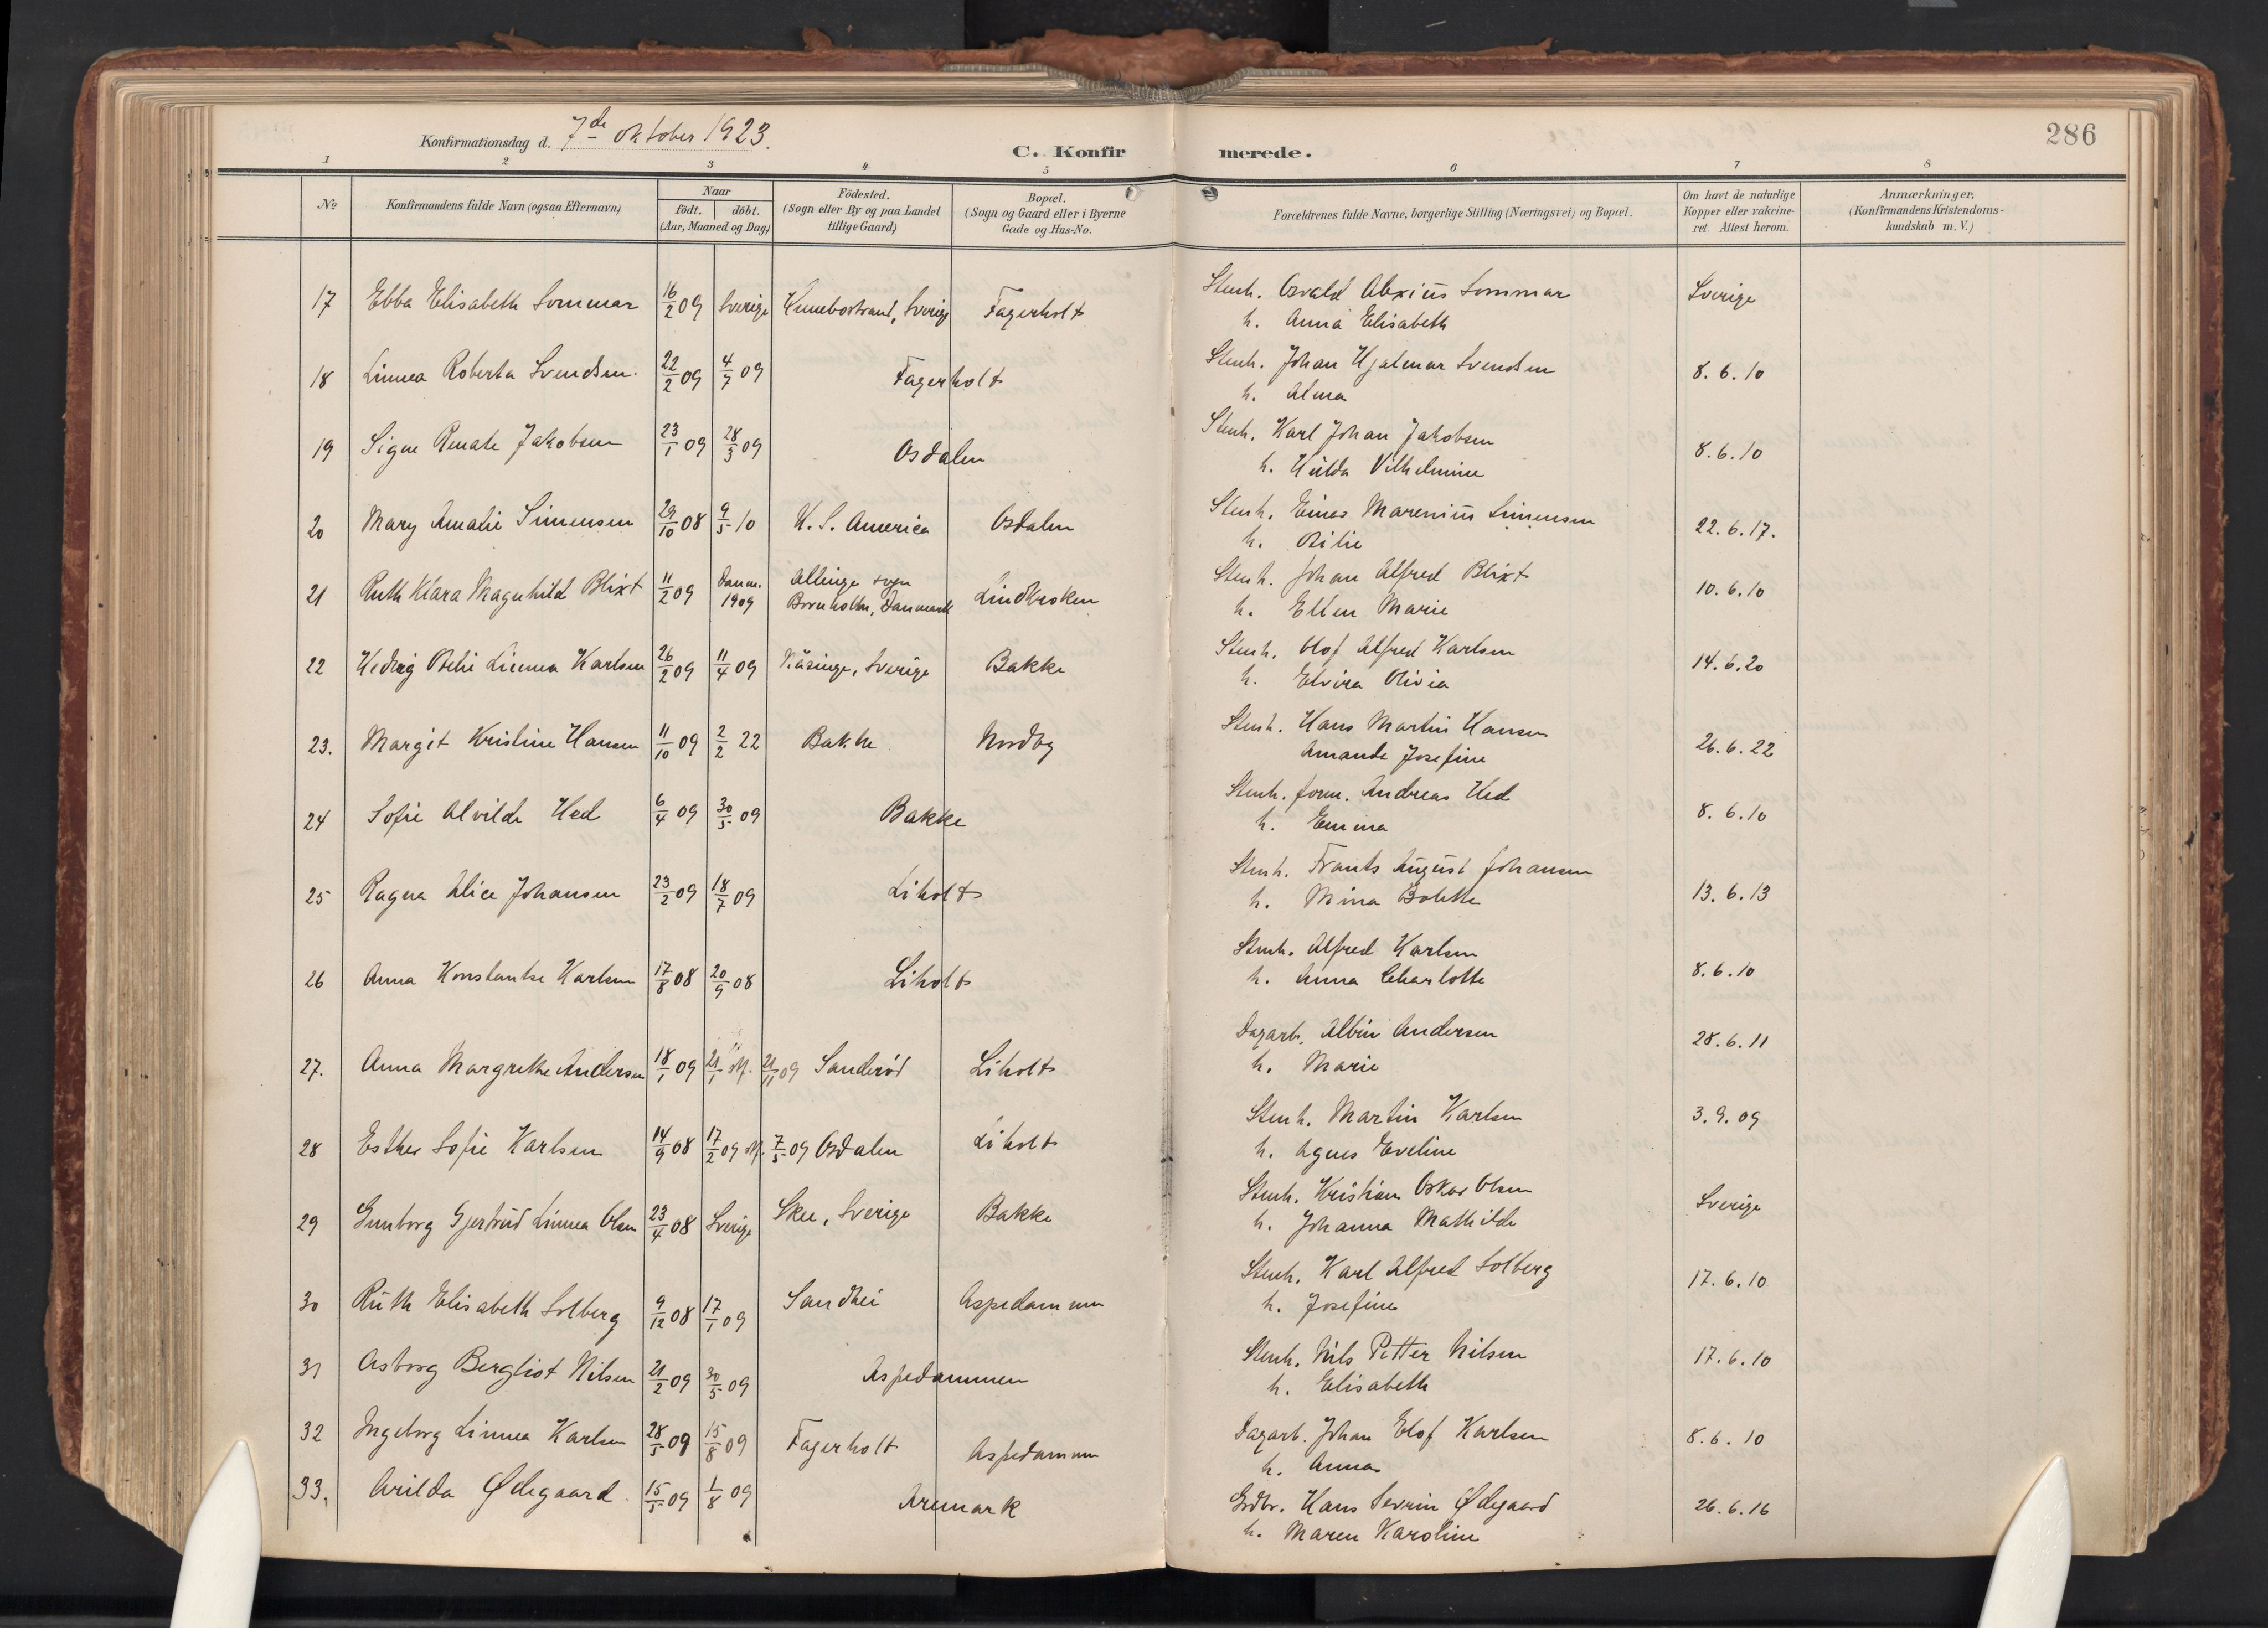 286
Konfirmationsdag d. 7de oktober 1923.
C. Konfirmerede.
1 2 3 4 5 6 7 8
No Konfirmandens fulde Navn (ogsaa Efternavn) Naar födt. döbt. (Aar, Maaned og Dag) Födested. (Sogn eller By og paa Landet tillige Gaard) Bopæl. (Sogn og Gaard eller i Byerne Gade og Hus-No. Forældrenes fulde Navne, borgerlige Stilling (Næringsvei) og Bopæl. Om havt de naturlige Kopper eller vakcineret. Attest herom. Anmærkninger. (Konfirmandens Kristendomskundskab m. V.)
17 Ebba Elisabeth Sommar 16/2 09 Sverige Hunebostrand, Sverige Fagerholt Stenh. Osvald Alexius Sommar Sverige
h. Anna Elisabeth
18 Linnea Roberta Svendsen. 22/2 09 4/7 09 Fagerholt Stenh. Johan Hjalmar Svendsen 8. 6. 10
h. Alma
19 Signe Renate Jakobsen 23/1 09 28/3 09 Osdalen Stenh. Karl Johan Jakobsen 8. 6. 10
h. Hulda Vilhelmine
20 Mary Amalie Simensen 29/10 08 9/5 10 U. S. America Osdalen Stenh. Einar Marenius Simensen 22. 6. 17.
h. Otilie
21 Ruth Klara Magnhild Blixt 11/2 09 Danm. 1909 Allinge sogn Bornholm, Danmark Lindbroken Stenh. Johan Alfred Blixt 10. 6. 10
h. Ellen Marie
22 Hedvig Otelie Linnea Karlsen 26/2 09 11/4 09 Näsinge, Sverige Bakke Stenh. Olof Alfred Karlsen 14. 6. 20
h. Elvira Olivia
23. Margit Kristine Hansen 11/10 09 2/2 22 Bakke Nordby Stenh. Hans Martin Hansen 26. 6. 22
Amanda Josefine
24 Sofie Alvilde Hed 6/4 09 30/5 09 Bakke Stenh. form. Andreas Hed 8. 6. 10
h. Emma
25 Ragna Alice Johansen 23/2 09 18/7 09 Liholt Stenh. Frants August Johansen 13. 6. 13
h. Mina Bolette
26 Anna Konstantse Karlsen 17/8 08 20/9 08 Liholt Stenh. Alfred Karlsen 8. 6. 10
h. Anna Charlotte
27. Anna Margrethe Andersen 18/1 09 21/1 M. 21/11 09 Sanderöd Liholt Dagarb. Albin Andersen 28. 6. 11
h. Marie
28 Esther Sofie Karlsen 14/9 08 17/2 09 M. 7/5 09 Osdalen Liholt Stenh. Martin Karlsen 3. 9. 09
h. Agnes Eveline
29 Gunborg Gjertrud Linnea Olsen 23/4 08 Sverige Skee, Sverige Bakke Stenh. Kristian Oskar Olsen Sverige
h. Johanna Mathilde
30 Ruth Elisabeth Solberg 9/12 08 17/1 09 Sandhei Aspedammen Stenh. Karl Alfred Solberg 17. 6. 10
h. Josefine
31 Asborg Bergliot Nilsen 21/2 09 30/5 09 Aspedammen Stenh. Nils Petter Nilsen 17. 6. 10
h. Elisabeth
32 Ingeborg Linnea Karlsen 28/5 09 15/8 09 Fagerholt Aspedammen Dagarb. Johan Elof Karlsen 8. 6. 10
h. Anna
33. Arilda Ødegaard. 15/5 09 1/8 09 Aremark Grdbr. Hans Severin Ødegaard 26. 6. 16
h. Maren Karoline